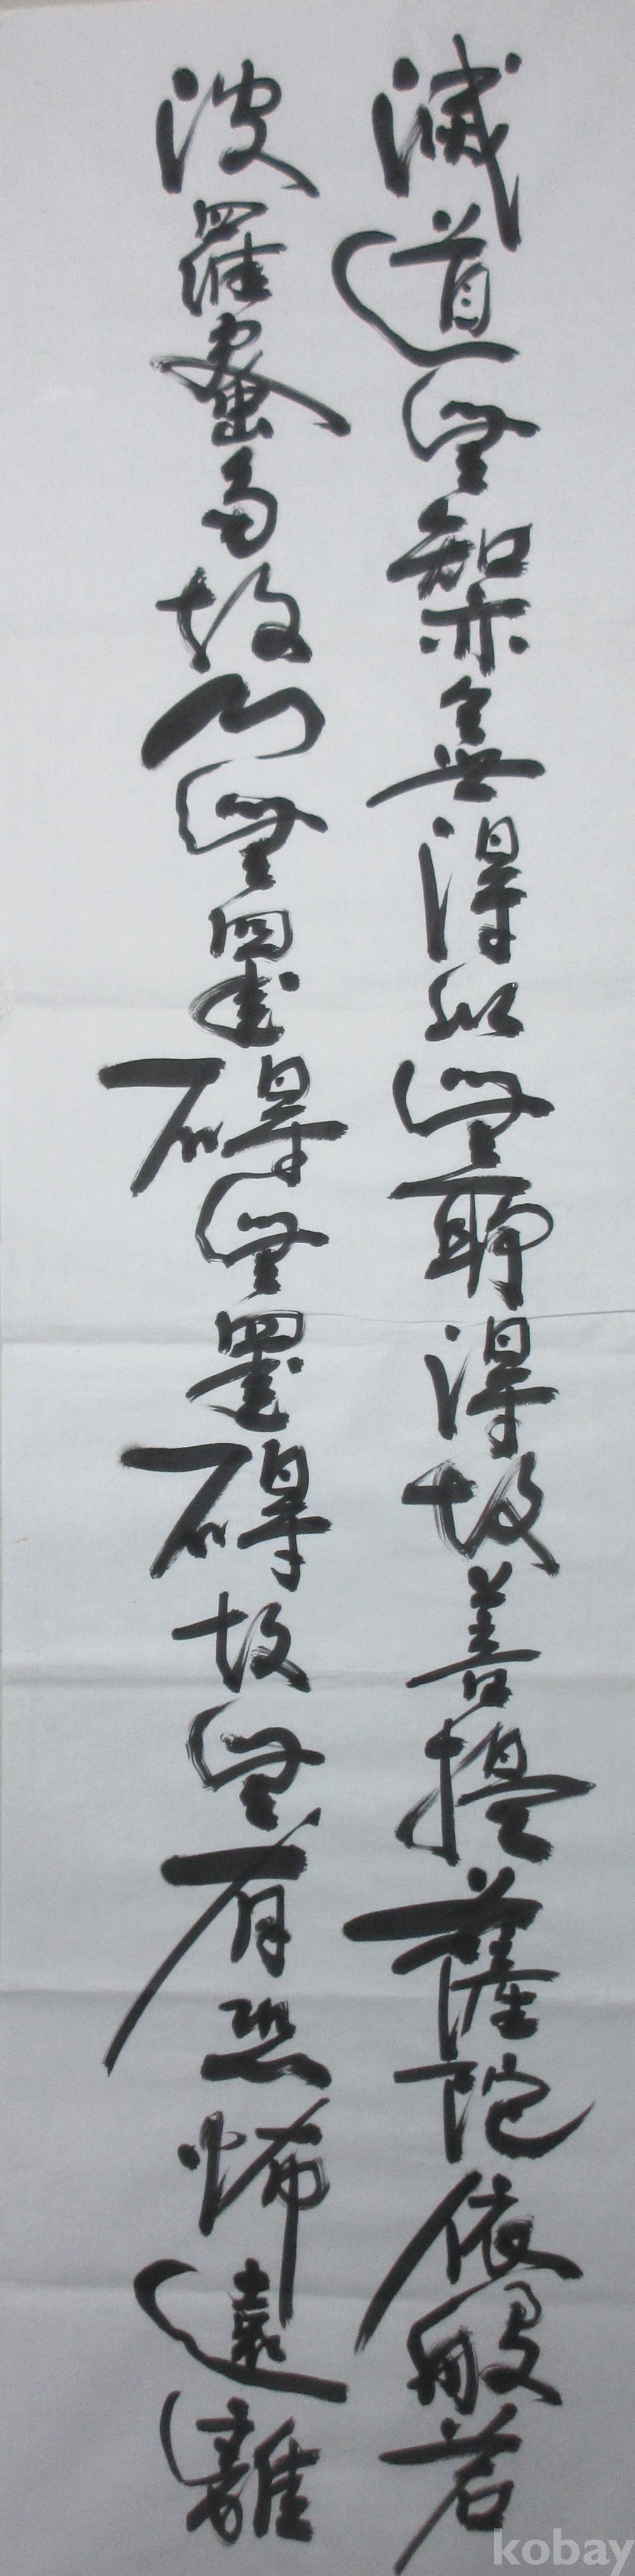 滅道無知亦無得以無所得故菩提薩陀依般若
波羅蜜多故心無罣碍無罣碍故無有恐怖遠離
kobay